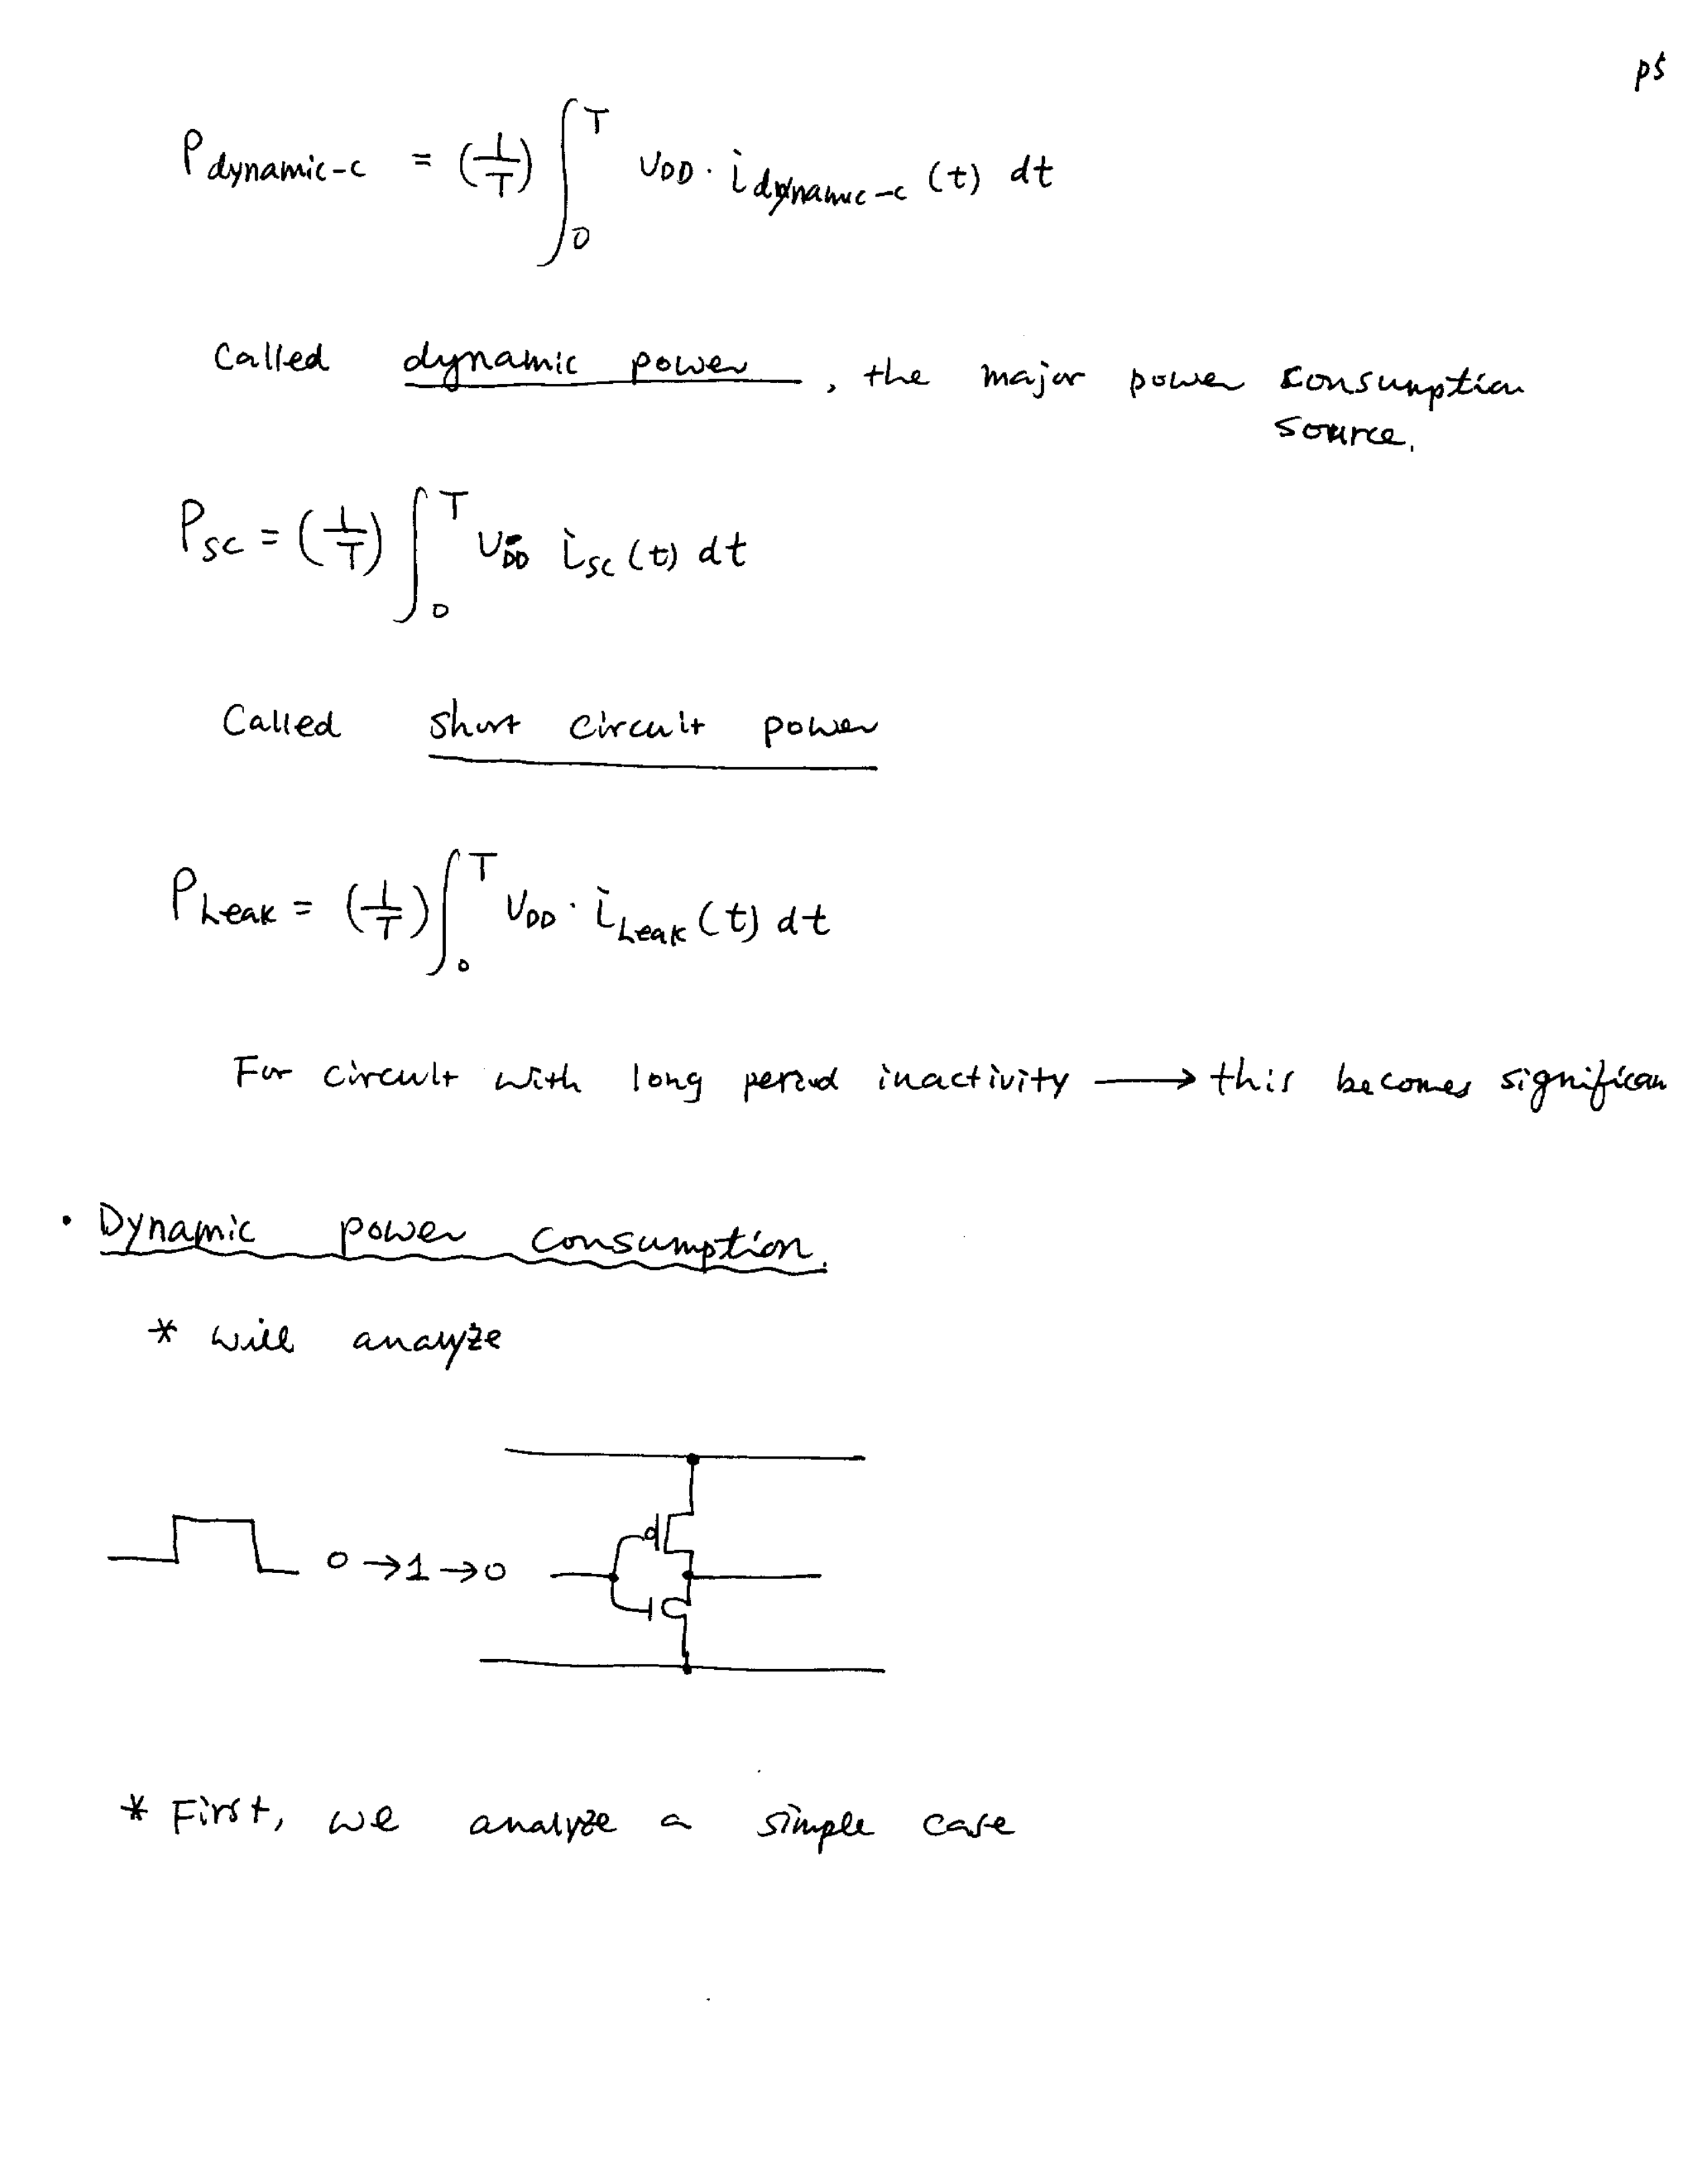 p5
P dynamic-c = (1/T) ∫₀ᵀ VDD · i dynamic-c (t) dt
Called dynamic power, the major power consumption
source.
P SC = (1/T) ∫₀ᵀ VDD i SC (t) dt
Called short circuit power
P Leak = (1/T) ∫₀ᵀ VDD · i Leak (t) dt
For circuit with long period inactivity ⟶ this becomes significan
• Dynamic power consumption.
* will analyze
0 → 1 → 0
* First, we analyze a simple case